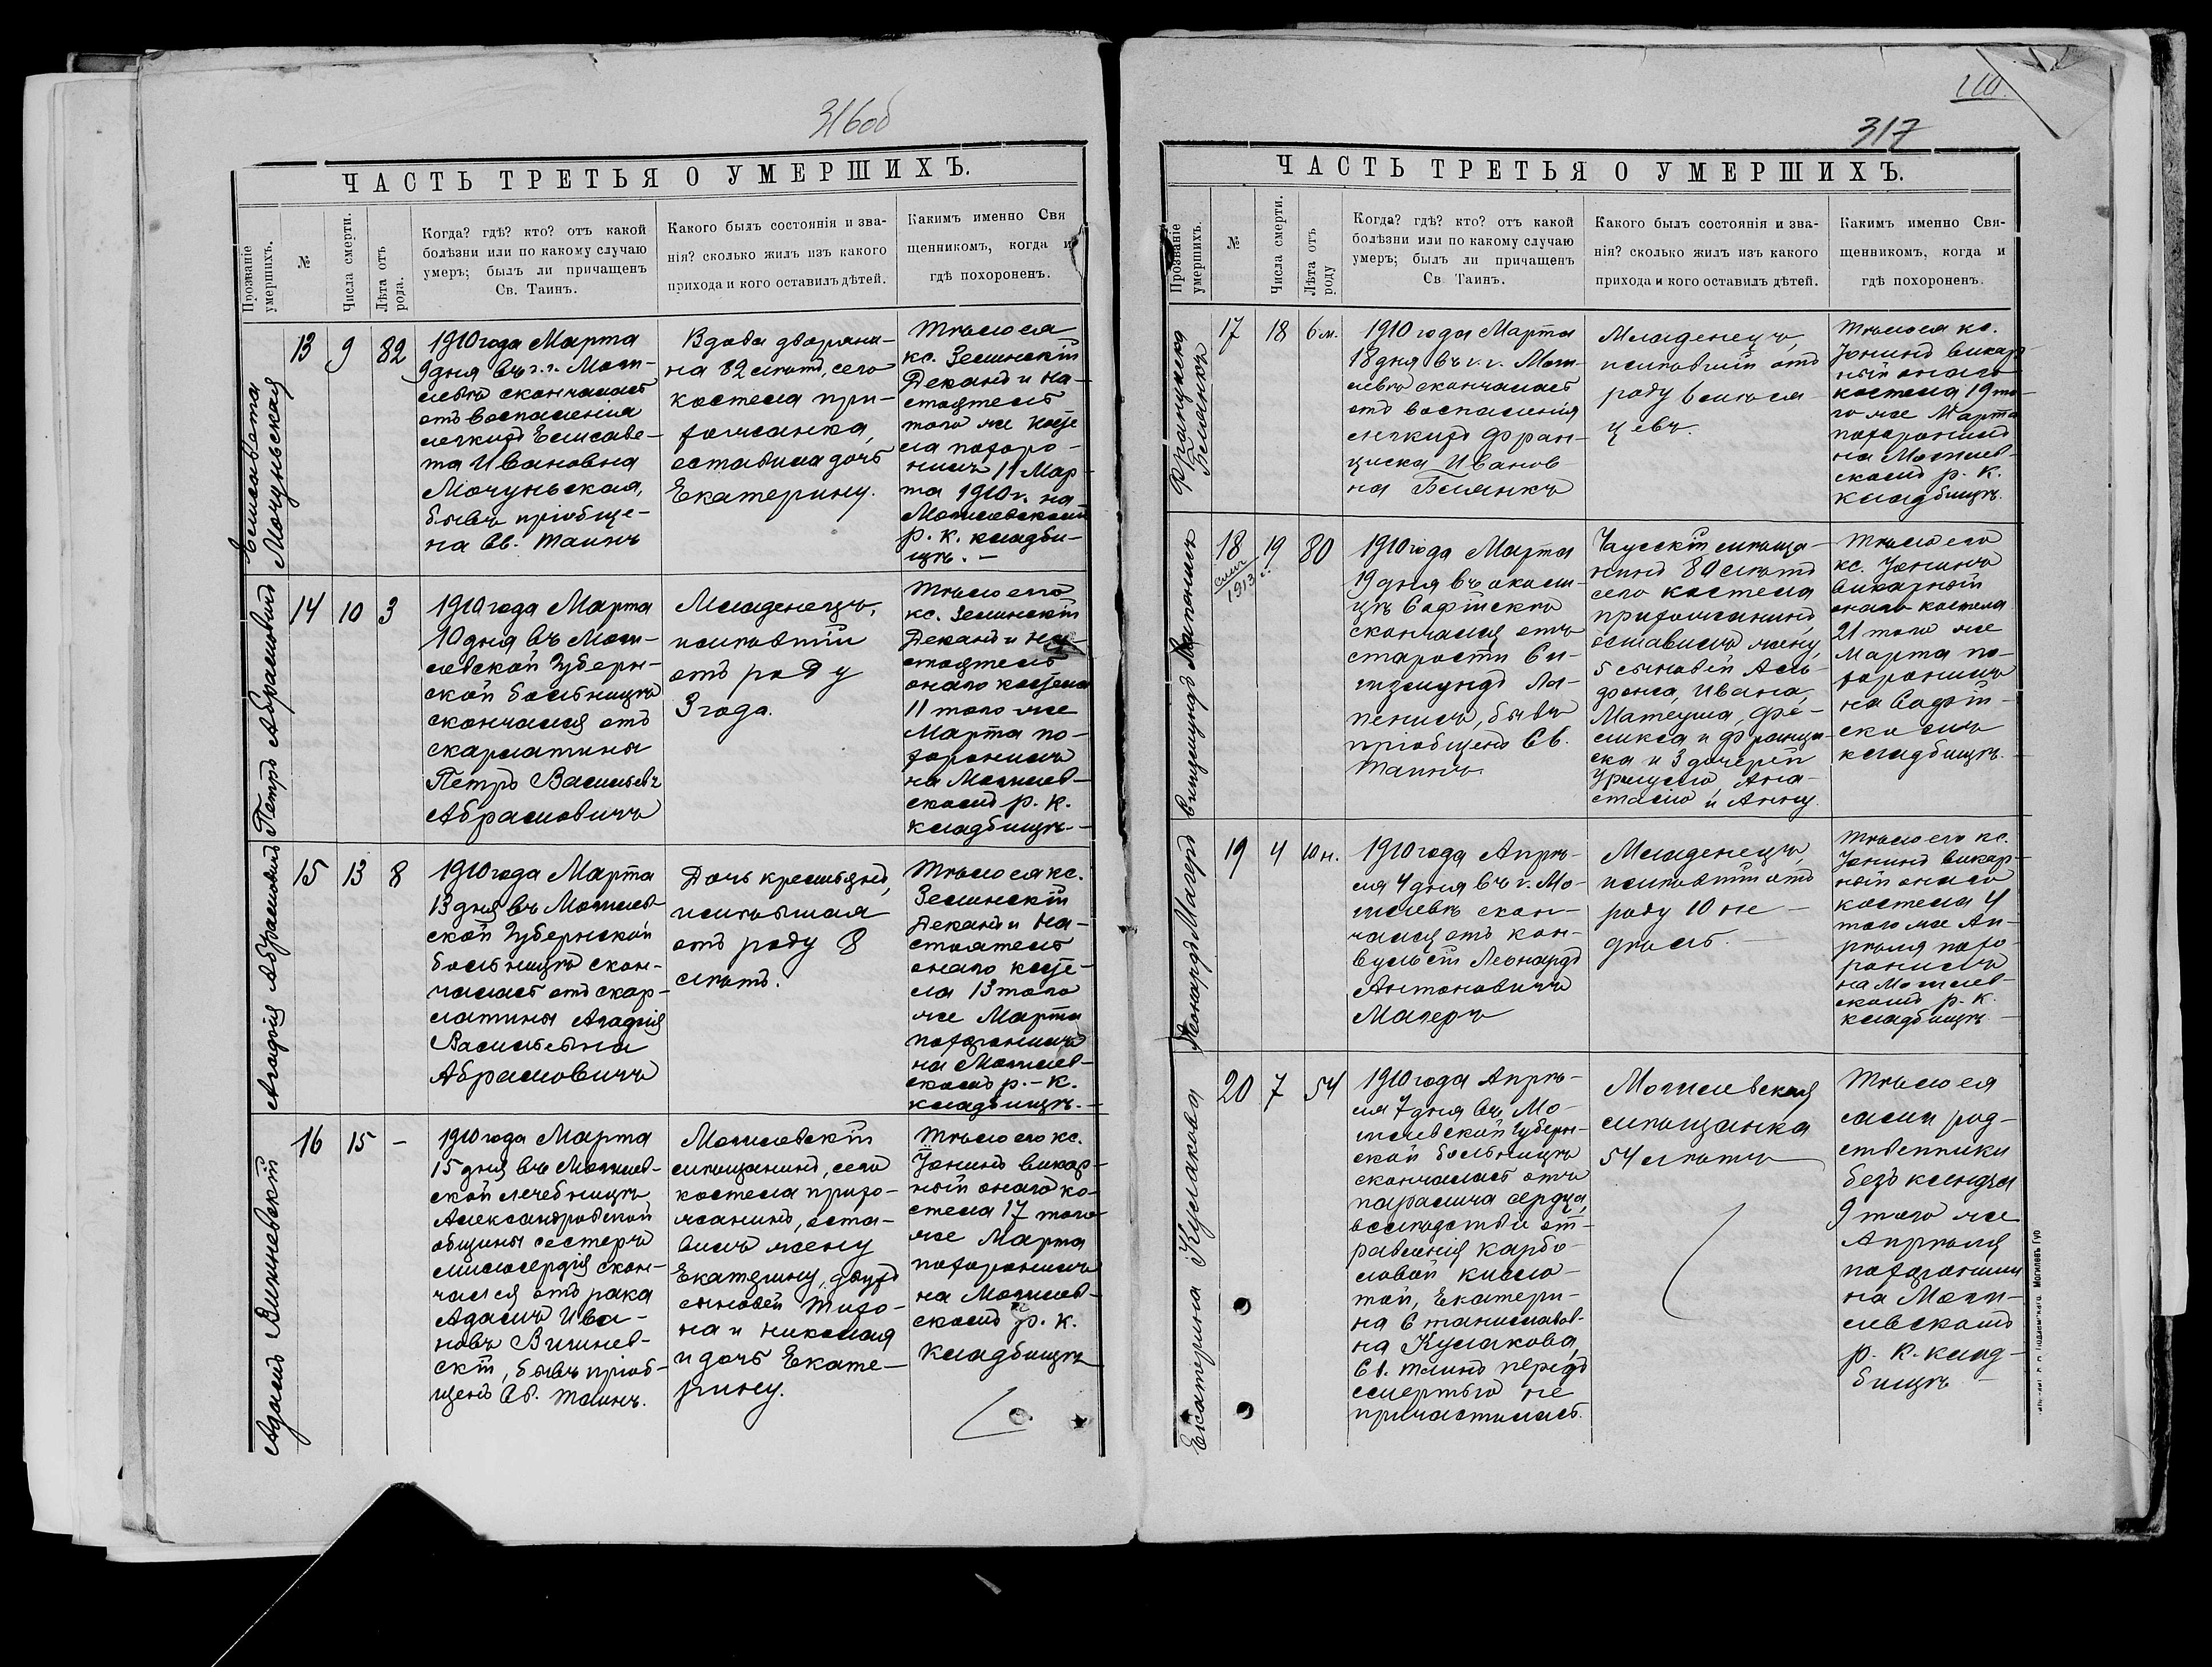 316об
ЧАСТЬ ТРЕТЬЯ О УМЕРШИХЪ.
Прозваніе
умершихъ.
№
Числа смерти.
Лѣта отъ
рода.
Когда? гдѣ? кто? отъ какой
болѣзни или по какому случаю
умеръ; былъ ли причащенъ
Св. Таинъ.
Какого былъ состоянія и зва-
нія? сколько жилъ изъ какого
прихода и кого оставилъ дѣтей.
Какимъ именно Свя
щенникомъ, когда и
гдѣ похороненъ.
Елисавета
Мочуньская
13
9
82
1910 года Марта
9 дня въ г. г. Моги-
левѣ скончалась
отъ воспаленія
легкихъ Елисаве-
та Ивановна
Мочуньская,
бывъ пріобще-
на Св. Таинъ
Вдова дворяни-
на 82 лѣтъ, сего
костела при-
хожанка,
оставила дочь
Екатерину.
Тѣло ея
кс. Зелинскій
Деканъ и На-
стоятель
того же косте
ла похоро-
нилъ 11 Мар-
та 1910 г. на
Могилевскомъ
р. к. кладби-
щѣ. -
Петръ Абрамовичъ
14
10
3
1910 года Марта
10 дня въ Моги-
левской Губерн-
ской больницѣ
скончался отъ
скарлатины
Петръ Васильевъ
Абрамовичъ
Младенецъ,
жившій
отъ роду
3 года.
Тѣло его
кс. Зелинскій
Деканъ и На-
стоятель
онаго костела
11 того же
Марта по-
хоронилъ
на Могилев-
скомъ р. к.
кладбищѣ.-
Агафія Абрамовичъ
15
13
8
1910 года Марта
13 дня въ Могилев-
ской Губернской
больницѣ скон-
чалась отъ скар-
латины Агафія
Васильевна
Абрамовичъ
Дочь крестьянъ,
жившая
отъ роду 8
лѣтъ.
Тѣло ея кс.
Зелинскій
Деканъ и На-
стоятель
онаго косте-
ла 13 того
же Марта
похоронилъ
на Могилев-
скомъ р.-к.
кладбищѣ.-
Адамъ Вишневскій
16
15
-
1910 года Марта
15 дня въ Могилев-
ской лечебницѣ
Александровской
общины сестеръ
милосердія скон-
чался отъ рака
Адамъ Ива-
новъ Вишнев-
скій, бывъ пріоб-
щенъ Св. Таинъ.
Могилевскій
мѣщанинъ, сего
костела прихо-
жанинъ, оста-
вилъ жену
Екатерину, двухъ
сыновей Тихо-
на и Николая
и дочь Екате-
рину.
Тѣло его кс.
Јонинъ викар-
ный онаго ко-
стела 17 того
же Марта
похоронилъ
на Могилев-
скомъ р. к.
кладбищѣ
317
ЧАСТЬ ТРЕТЬЯ О УМЕРШИХЪ.
Прозваніе
умершихъ.
№
Числа смерти.
Лѣта отъ
роду
Когда? гдѣ? кто? отъ какой
болѣзни или по какому случаю
умеръ; былъ ли причащенъ
Св. Таинъ.
Какого былъ состоянія и зва-
нія? сколько жилъ изъ какого
прихода и кого оставилъ дѣтей.
Какимъ именно Свя-
щенникомъ, когда и
гдѣ похороненъ.
Франциска
Белянкъ
17
18
6 м.
1910 года Марта
18 дня въ г. г. Моги-
левѣ скончалась
отъ воспаленія
легкихъ Фран-
циска Иванов-
на Белянкъ
Младенецъ,
жившій отъ
роду 6 мѣся-
цевъ.
Тѣло ея кс.
Јонинъ викар-
ный онаго
костела 19 то-
го же Марта
похоронилъ
на Могилев-
скомъ р. к.
кладбищѣ.
Сигизмундъ Лапеничъ
18
1913 г.
19
80
1910 года Марта
19 дня въ околи-
цѣ Софійскъ
скончался отъ
старости Си-
гизмундъ Ла-
пеничъ, бывъ
пріобщенъ Св.
Таинъ.
Чаусскій мѣща-
нинъ 80 лѣтъ
сего костела
прихожанинъ
оставилъ жену,
5 сыновей Аль-
фонса, Ивана,
Матеуша, Фе-
ликса и Францы-
ска и 3 дочерей
Уршулю Ана-
стасію и Анну
Тѣло его
кс. Јонинъ
викарный
онаго костела
21 того же
Марта по-
хоронилъ
на Софій-
скомъ
кладбищѣ.
Леонардъ Магеръ
19
4
10 н.
1910 года Апрѣ-
ля 4 дня въ г. Мо-
гилевѣ скон-
чался отъ кон-
вульсій Леонардъ
Антоновичъ
Магеръ
Младенецъ,
жившій отъ
роду 10 не-
дѣль.
Тѣло его кс.
Јонинъ викар-
ный онаго
костела 4
того же Ап-
рѣля похо-
ронилъ
на Могилев-
скомъ р. к.
кладбищѣ
Екатерина Кулакова
20
7
54
1910 года Апрѣ-
ля 7 дня въ Мо-
гилевской Губерн-
ской больницѣ
скончалась отъ
паралича сердца,
вслѣдствіе от-
равленія карбо-
ловой кисло-
той, Екатери-
на Станиславов-
на Кулакова,
Св. Таинъ передъ
смертью не
причастилась.
Могилевская
мѣщанка
54 лѣтъ
Тѣло ея
сами род-
ственники
безъ ксендза
9 того же
Апрѣля
похоронили
на Моги-
левскомъ
р. к. клад-
бищѣ